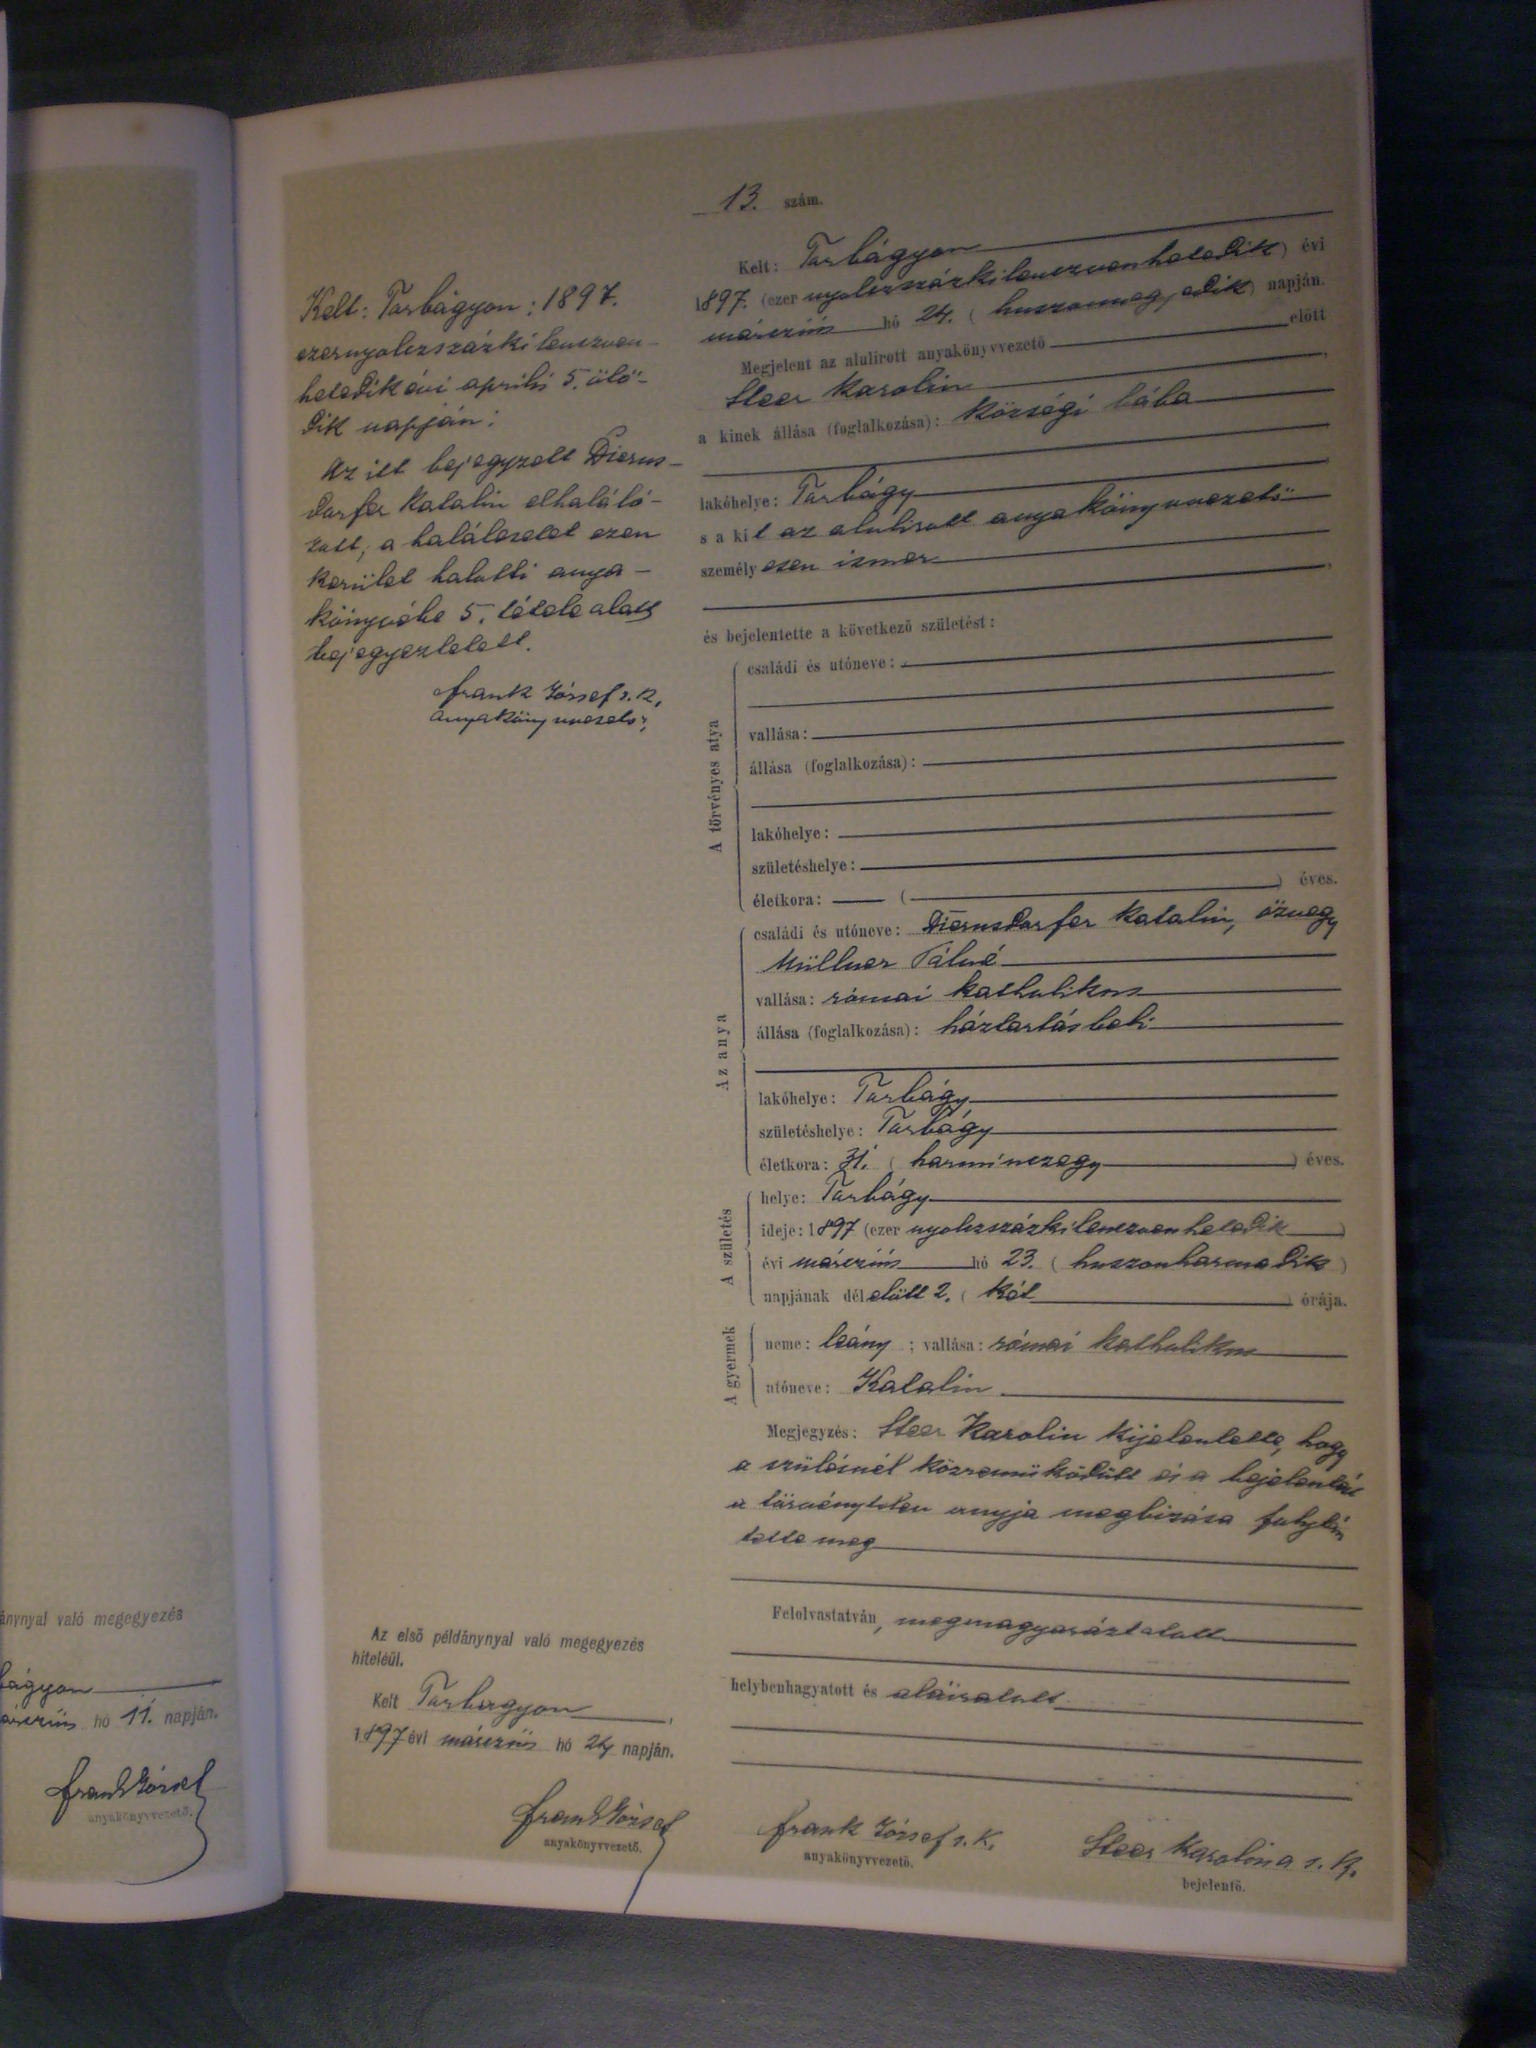 ánynyal való megegyezés
bágyon
hó 11. napján.
Frank József
anyakönyvvezető.
Kelt: Torbágyon: 1897.
ezernyolczszázkilenczven-
hetedik évi április 5. ötö-
dik napján:
Az itt bejegyzett Diens-
dorfer Katalin elhalálo-
zott, a haláleset ezen
kerület halotti anya-
könyvébe 5. tétele alatt
bejegyeztetett.
Frank József s. k.
anyakönyvvezető
Az első példánynyal való megegyezés
hiteléül.
Kelt Torbagyon
1897 évi márczius hó 24 napján.
Frank József
anyakönyvvezető.
13. szám.
Kelt: Torbágyon
1897. (ezer nyolczszázkilenczvenhetedik) évi
márczius hó 24. (huszonnegyedik) napján.
Megjelent az alulirott anyakönyvvezető előtt
Steer Karolin
a kinek állása (foglalkozása): községi bába
lakóhelye: Torbágy
s a kit az alulirott anyakönyvvezető
személyesen ismer
és bejelentette a következő születést:
A törvényes atya
családi és utóneve:
vallása:
állása (foglalkozása):
lakóhelye:
születéshelye:
életkora: ( ) éves.
Az anya
családi és utóneve: Diensdorfer Katalin, özvegy
Müllner Pálné
vallása: római katholikus
állása (foglalkozása): háztartásbeli
lakóhelye: Torbágy
születéshelye: Torbágy
életkora: 31. (harminczegy) éves.
A születés
helye: Torbágy
ideje: 1897 (ezer nyolczszázkilenczvenhetedik)
évi márczius hó 23. (huszonharmadik)
napjának délelőtt 2. (két) órája.
A gyermek
neme: leány; vallása: római katholikus
utóneve: Katalin
Megjegyzés: Steer Karolin kijelentette, hogy
a szülésnél közreműködött és a bejelentést
a törvénytelen anyja megbizása folytán
tette meg
Felolvastatván, megmagyaráztatott
helybenhagyatott és aláiratott
Frank József s. k.
anyakönyvvezető.
Steer Karolina s. k.
bejelentő.